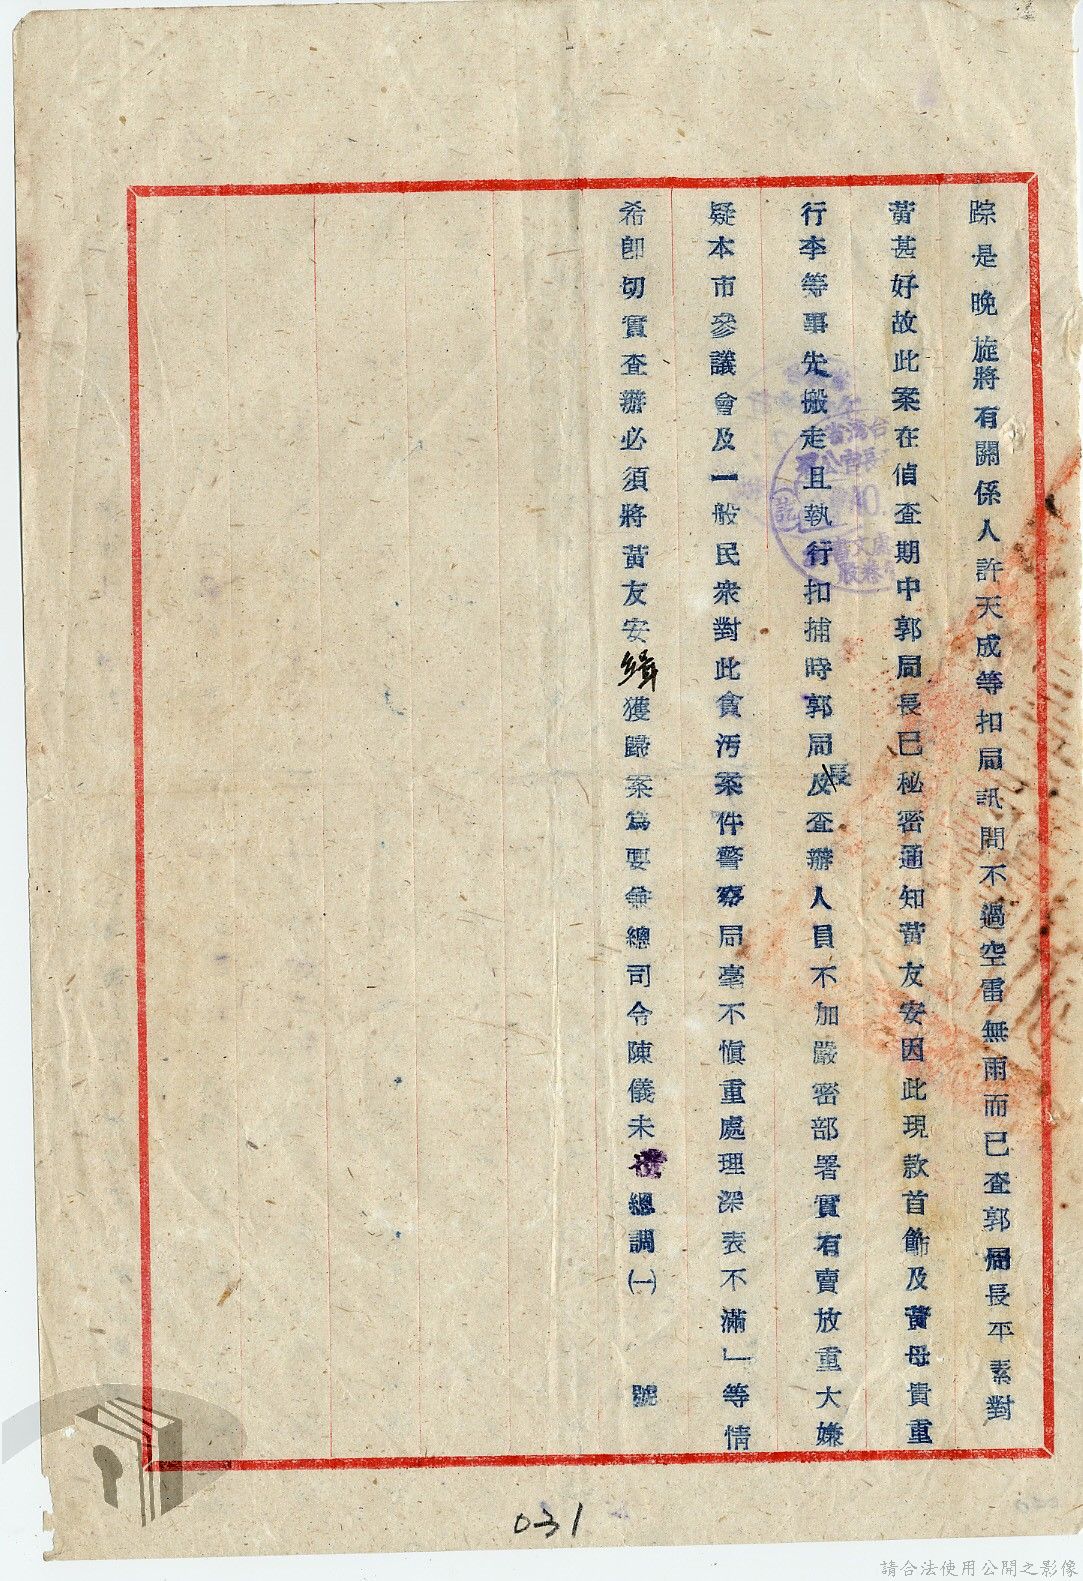 踪是晚旋將有關係人許天成等扣局訊問不過空雷無雨而已查郭局長平素對
黃甚好故此案在偵查期中郭局長已秘密通知黃友安因此現款首飾及黃母貴重
行李等事先搬走且執行扣捕時郭局長及查辦人員不加嚴密部署實有賣放重大嫌
疑本市參議會及一般民衆對此貪汚案件警察局毫不愼重處理深表不滿」等情
希卽切實查辦必須將黃友安緝獲歸案為要兼總司令陳儀未 總調㈠　號
031
請合法使用公開之影像